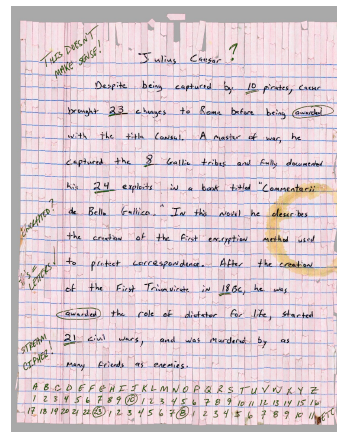 THIS DOESN'T
MAKE SENSE!
Julius Caesar ?
Despite being captured by 10 pirates, Caesar
brought 23 changes to Rome before being awarded
with the title Consul. A master of war, he
captured the 8 Gallic tribes and fully documented
his 24 exploits in a book titled "Commentarii
de Bello Gallico." In this novel he describes
the creation of the first encryption method used
to protect correspondence. After the creation
of the First Triumvirate in 18 BC, he was
awarded the role of dictator for life, started
21 civil wars, and was murdered by as
many friends as enemies.
ENCRYPTED?
#'s =
LETTERS!
STREAM
CIPHER!
A B C D E F G H I J K L M N O P Q R S T U V W X Y Z
1 2 3 4 5 6 7 8 9 10 1 2 3 4 5 6 7 8 9 10 11 12 13 14 15 16
17 18 19 20 21 22 23 1 2 3 4 5 6 7 8 1 2 3 4 5 6 7 8 9 10 11 ETC